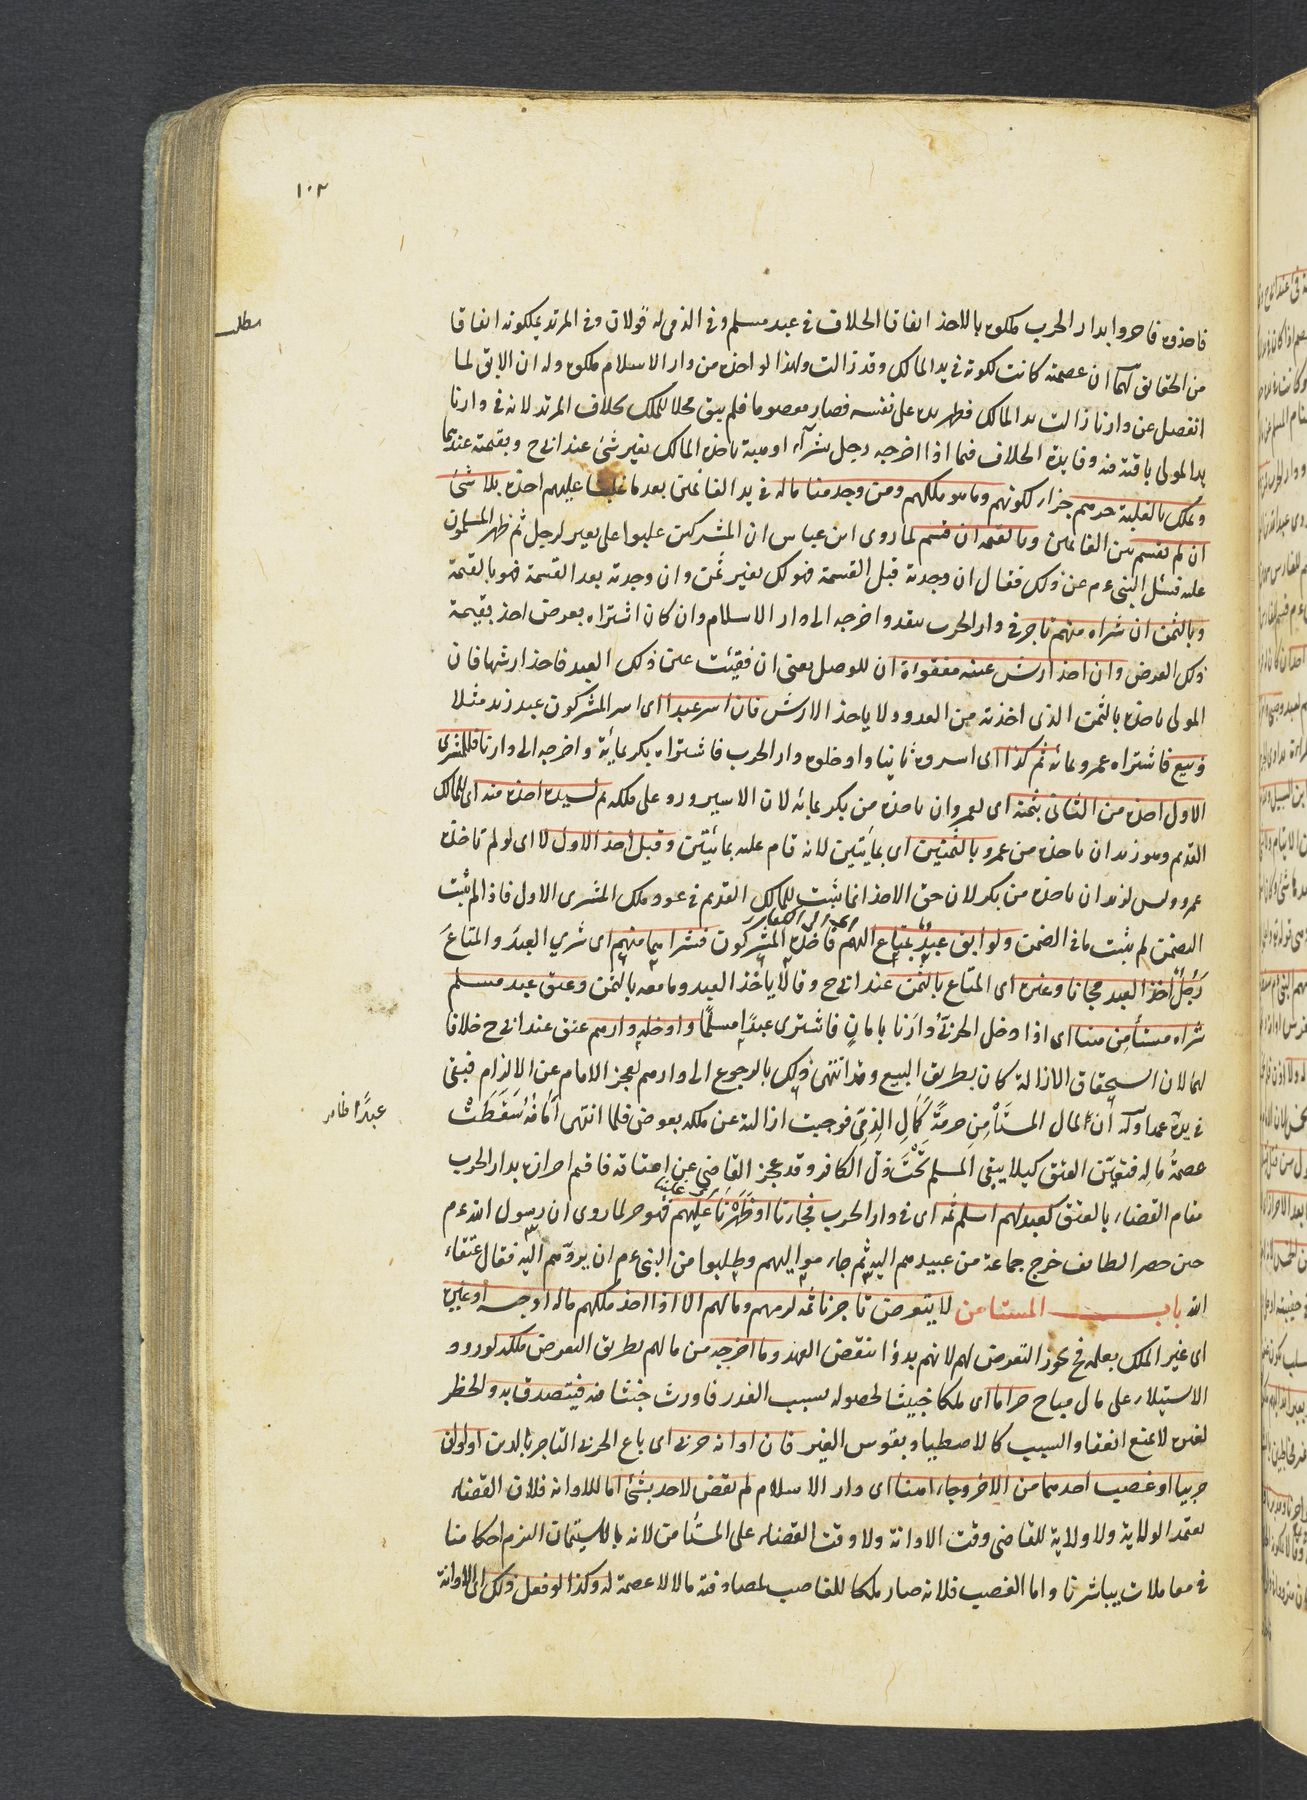 ١٠٢
مطلب
فاخذوه فاحروا بدار الحرب ملكوه بالاخذ اتفاقا الخلاف في عبد مسلم وفي الذمي له قولان وفي المرتد يملكونه اتفاقا
من الحقائق لهما ان عصمته كانت لكونه في يد المالك وقد زالت ولهذا لو اخذه من دار الاسلام ملكوه وله ان الابق لما
انفصل عن دارنا زالت يد المالك فظهر يده على نفسه فصار معصوما فلم يبق محلا للملك بخلاف المرتد لانه في دارنا
يد المولى باقية فيه وفايدة الخلاف فيما اذا اخرجه رجل بشراء او هبة ياخذه المالك بغير شئ عند ابي ح وبقيمته عندهما
ونملك بالغلبة حرهم جزاء لكفرهم وما هو ملكهم ومن وجد منا ماله في يد الغانمين بعد ما غلبنا عليهم اخذه بلا شئ
ان لم يقسم بين الغانمين وبالقيمة ان قسم لما روى ابن عباس ان المشركين غلبوا على بعير لرجل ثم ظهر المسلمون
عليه فسئل النبي عم عن ذلك فقال ان وجدته قبل القسمة فهو لك بغير ثمن وان وجدته بعد القسمة فهو بالقيمة
وبالثمن ان شراه منهم تاجر في دار الحرب بنقد واخرجه الى دار الاسلام وان كان اشتراه بعرض اخذ بقيمة
ذلك العرض وان اخذ ارش عينه مفقوأة ان للوصل يعني ان فقئت عين ذلك العبد فاخذ ارشها فان
المولى ياخذه بالثمن الذي اخذته من العدو ولا ياخذ الارش فان اسر عبدا اي اسر المشركون عبد زيد مثلا
وبيع فاشتراه عمرو بمائة ثم كذا اي اسروه ثانيا وادخلوه دار الحرب فاشتراه بكر بمائة واخرجه الى دارنا فللمشتري
الاول اخذه من الثاني بثمنه اي لعمرو ان ياخذه من بكر بمائة لان الاسير ورد على ملكه ثم لسيده اخذه منه اي للمالك
القديم وهو زيد ان ياخذه من عمرو بالثمنين اي بمأيتين لانه قام عليه بمائيتين وقبل اخذ الاول لا اي لو لم ياخذه
عمرو وليس لزيد ان ياخذه من بكر لان حق الاخذ انما ثبت للمالك القديم في عود ملك المشتري الاول فاذا لم يثبت
المتضمن لم يثبت ما في الضمن ولو ابق عبد بمتاع اليهم فاخذه المشركون فشراهما منهم اي شري العبد والمتاع
رجل اخذ العبد مجانا وغيره اي المتاع بالثمن عند ابي ح وقالا ياخذ العبد وما معه بالثمن وعتق عبد مسلم
شراه مستأمن منا اي اذا دخل الحربي دارنا بامان فاشترى عبدا مسلما وادخله دارهم عتق عند ابي ح خلافا
لهما لان استحقاق الازالة كان بطريق البيع وقد انتهى ذلك بالرجوع الى دارهم لعجز الامام عن الالزام فبقي
في يده عبدا وله ان لمال المستأمن حرمة كمال الذمي فوجبت ازالته عن ملكه بعوض فلما انتهى امانه سقطت
عبدًا ظاهر
عصمة ماله فتعين العتق كيلا يبقى المسلم تحت ذل الكافر وقد عجز القاضي عن اعتاقه فاقيم احرازه بدار الحرب
مقام القضاء بالعتق كعبد لهم اسلم ثمه اي في دار الحرب فجاءنا او ظهرنا عليهم فهو حر لما روى ان رسول الله عم
حين حصر الطائف خرج جماعة من عبيدهم اليه ثم جاء مواليهم وطلبوا من النبي عم ان يردهم اليه فقال عتقاء
الله باب المستأمن لا يتعرض تاجرنا ثمه لدمهم ومالهم الا اذا اخذ ملكهم ماله او حبسه او غيره
اي غير الملك بعلمه فح يجوز التعرض لهم لانهم بدؤا بنقض العهد وما اخرجه من مالهم بطريق التعرض ملكه لورود
الاستيلاء على مال مباح حراما اي ملكا خبيثا لحصوله بسبب الغدر فاورث خبثا فيه فيتصدق به والحظر
لغيره لا يمنع انعقاد السبب كالاصطياد بقوس الغير فان ادانه حربي اي باع الحربي التاجر بالدين او ادان
حربيا او غصب احدهما من الاخر وجاء امنا اي دار الاسلام لم يقض لاحد بشئ اما الادانة فلان القضاء
يعتمد الولاية ولا ولاية للقاضي وقت الادانة ولا وقت القضاء على المستأمن لانه بالاستيمان التزم احكامنا
في معاملات يباشرها واما الغصب فلانه صار ملكا للغاصب لمصادفته مالا لا عصمة له وكذا لو فعل ذلك اي الادانة